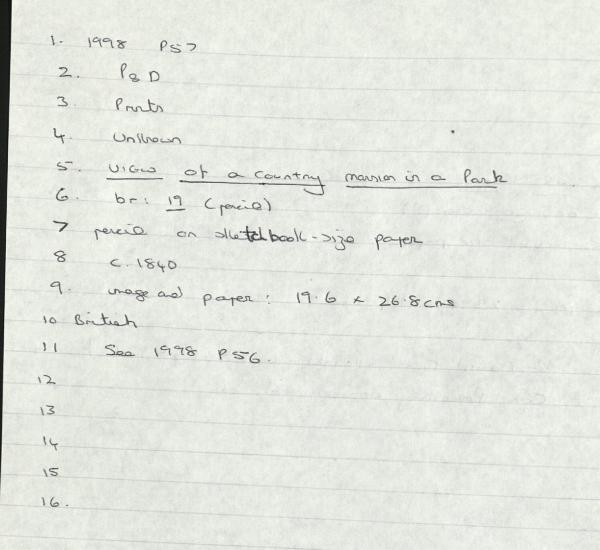 1. 1998 P57
2. P&D
3 Prints
4. Unknown
5. View of a country mansion in a Park
6. br: 19 (pencil)
7 pencil on sketchbook-size paper
8 c.1840
9. image and paper: 19.6 x 26.8cms
10 British
11 See 1998 P56.
12
13
14
15
16.